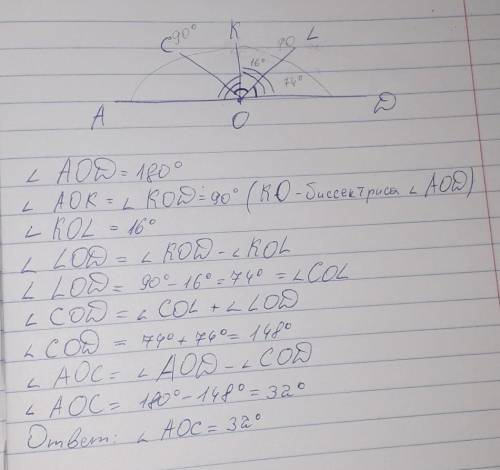 K
C 90° 90 L
16°
74°
A O D
∠ AOD = 180°
∠ AOK = ∠ KOD = 90° (KO - биссектриса ∠ AOD)
∠ KOL = 16°
∠ LOD = ∠ KOD - ∠ KOL
∠ LOD = 90° - 16° = 74° = ∠ COL
∠ COD = ∠ COL + ∠ LOD
∠ COD = 74° + 74° = 148°
∠ AOC = ∠ AOD - ∠ COD
∠ AOC = 180° - 148° = 32°
Ответ: ∠ AOC = 32°